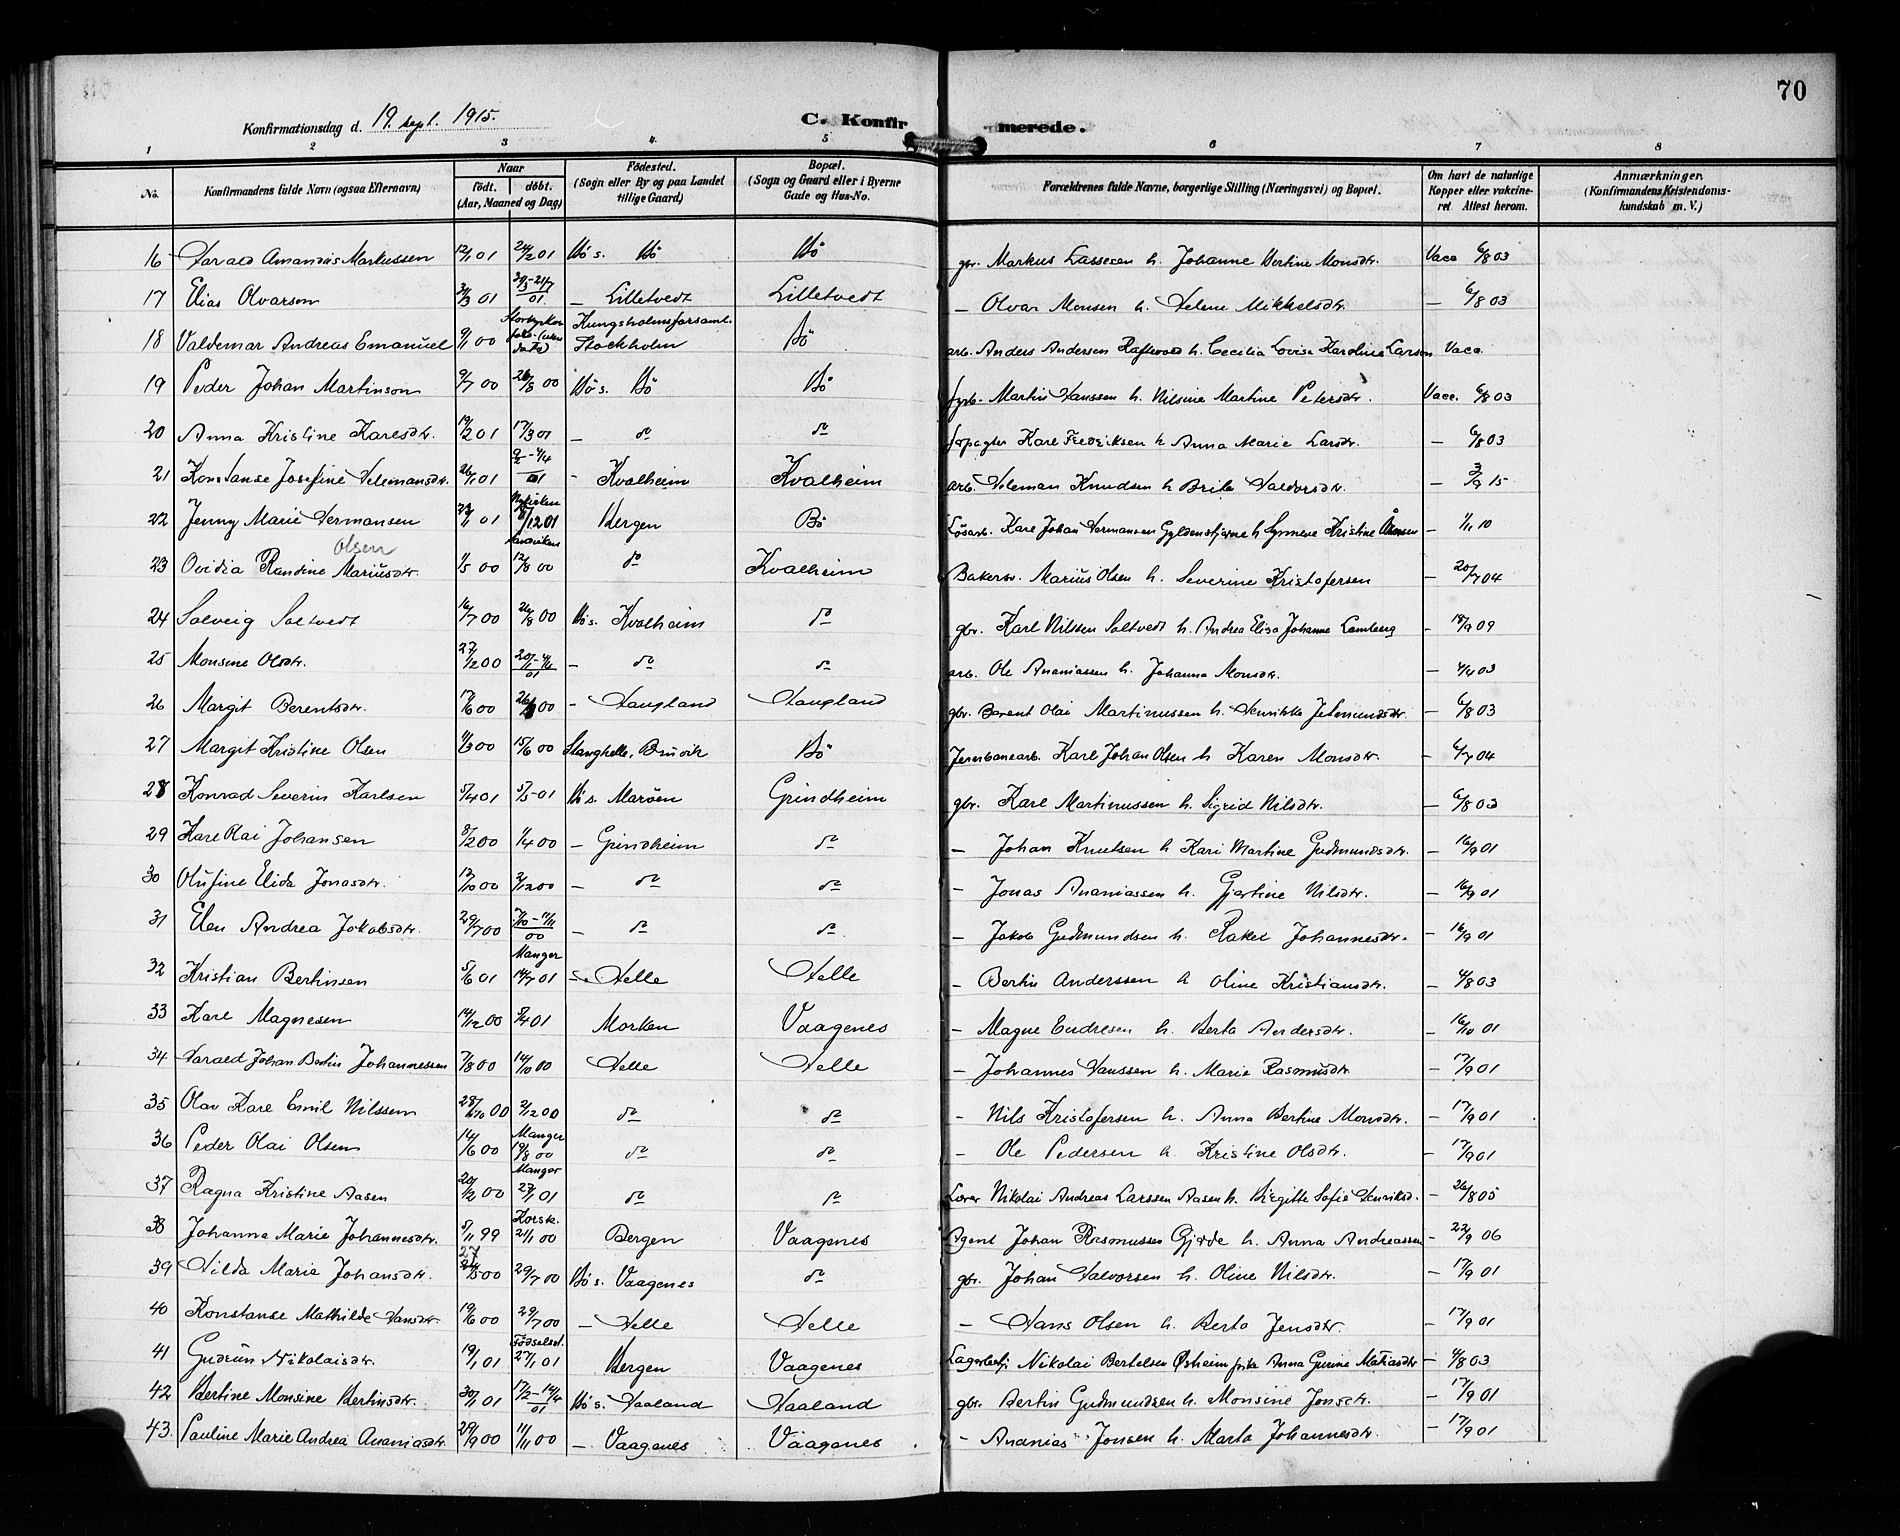 70
Konfirmationsdag d. 19. sept. 1915. C. Konfirmerede.
1 2 3 4. 5 6 7 8
No. Konfirmandens fulde Navn (ogsaa Efternavn) Naar født. døbt. (Aar, Maaned og Dag) Fødested. (Sogn eller By og paa Landet tillige Gaard) Bopæl. (Sogn og Gaard eller i Byerne Gade og Hus-No. Forældrenes fulde Navne, borgerlige Stilling (Næringsvei) og Bopæl. Om havt de naturlige Kopper eller vakcineret Attest herom. Anmærkninger. (Konfirmandens Kristendomskundskab m. V.)
16 Harald Amandus Markussen 12/1 01 24/2 01 Bø s. Bø Bø gbr. Markus Lassesen h. Johanne Bertine Monsdtr. Vacc 6/8 03
17 Elias Olvarson 01 – Lilletvedt Lilletvedt – Olvar Monsen h. Helene Mikkelsdtr. – 6/8 03
18 Valdemar Andreas Emanuel 9/11 00 Kungsholmsforsaml. Stockholm Bø arb. Anders Andersen h. Cecilia Lovise Karolina Larsen Vacc.
19 Peder Johan Martinson 9/7 00 26/8 00 Bø s. Bø Bø Martin Hanssen h. Nilsine Martine Petersdtr. Vacc. 6/8 03
20 Anna Kristine Karlsdtr. 19/2 01 17/3 01 – do do Karl Fredriksen h Anna Marie Larsdtr. – 6/8 03
21 Konstanse Josefine Helemansdtr. 26/1 01 9/2 – 4/4 01 – Kvalheim Kvalheim arb. Heleman Knudsen h Brita Halvorsdtr. – 3/9 15
22 Jenny Marie Hermansen 23/11 01 Nykirken 8/12 01 Bergen Bø Løsarb. Karl Johan Hermansen Gyldenstjerne h Synneve Kristine – 1/11 10
23 Ovidia Randine Mariusdtr. Olsen 1/5 00 12/8 00 do Kvalheim Bakersv. Marius Olsen h. Severine Kristofersen – 20/7 04
24 Solveig Soltvedt 16/7 00 26/8 00 Bø s. Kvalheim do gbr. Karl Nilssen Soltvedt h. Andrea Elisa Johanne Lamberg – 18/9 09
25 Monsine Olsdtr. 27/12 00 20/1 – 4/4 01 – do do arb. Ole Ananiassen h. Johanna Monsdtr. – 4/4 03
26 Margit Berentsdtr. 17/6 00 00 – Haugland Haugland gbr. Berent Olai Martinussen h. Henrikke Jetmundsdtr. – 6/8 03
27 Margit Kristine Olsen 4/3 00 15/6 00 Stanghelle, Bruvik Bø Jernbanearb. Karl Johan Olsen h Karen Monsdtr. – 6/7 04
28 Konrad Severin Karlsen 5/4 01 5/5 – 01 Bø s. Marøen Grindheim gbr. Karl Martinussen h. Sigrid Nilsdtr. – 6/8 03
29 Karl Olai Johansen 8/2 00 1/4 00 – Grindheim do – Johan Knutsen h Kari Martine Gudmundsdtr. – 16/9 01
30 Olufine Elida Jonasdtr. 12/10 00 2/12 00 – do do – Jonas Ananiassen h. Gjertine Nilsdtr. – 16/9 01
31 Elen Andrea Jakobsdtr. 29/7 00 7/10 – 11/11 00 – do do – Jakob Gudmundsen h. Rakel Johannesdtr. – 16/9 01
32 Kristian Bertinsen 5/6 01 Manger 14/7 01 – Helle Helle – Bertin Anderssen h Oline Kristiansdtr. – 4/8 03
33 Karl Magnesen 14/12 00 8/4 01 Morken Vaagenes – Magne Endresen h. Berta Andersdtr. – 16/10 01
34 Harald Johan Bertin Johannessen 7/8 00 14/10 00 Helle Helle – Johannes Hanssen h. Marie Rasmusdtr – 17/9 01
35 Olav Karl Emil Nilssen 28/10 00 2/12 00 do do – Nils Kristofersen h. Anna Bertine Monsdtr. – 17/9 01
36 Peder Olai Olsen 14/6 00 Manger 19/8 00 do do – Ole Pedersen h. Kristine Olsdtr. – 17/9 01
37 Ragna Kristine Aasen 20/12 00 Manger 27/1 01 do do Lærer Nikolai Andreas Larssen Aasen h. Birgitte Sofie Henriksd. – 26/8 05
38 Johanna Marie Johannesdtr. 5/11 99 Korsk. 21/1 00 Bergen Vaagenes Agent Johan Rasmussen Gjerde h. Anna Andreassen – 22/9 06
39 Hilda Marie Johansdtr. 27/5 00 29/7 00 Bø s. Vaagenes do gbr. Johan Halvorsen h. Oline Nilsdtr. – 17/9 01
40 Konstanse Mathilde Hansdtr. 19/6 00 29/7 00 – Helle Helle – Hans Olsen h. Berta Jensdtr. – 17/9 01
41 Gudrun Nikolaisdtr. 19/1 01 Fødselsst. 27/1 01 Bergen Vaagenes Lagerbetj Nikolai Bertelsen Østheim Anna Gurine Matiasdtr – 4/8 03
42 Bertine Monsine Bertinsdtr. 30/1 01 17/2 – 14/4 01 Bø s. Haaland Haaland gbr. Bertin Gudmundsen h. Monsine Jonsdtr. – 17/9 01
43. Pauline Marie Andrea Ananiasdtr. 29/9 00 11/11 00 – Vaagenes Vaagenes – Ananias Jonsen h. Marta Johannesdtr. – 17/9 01